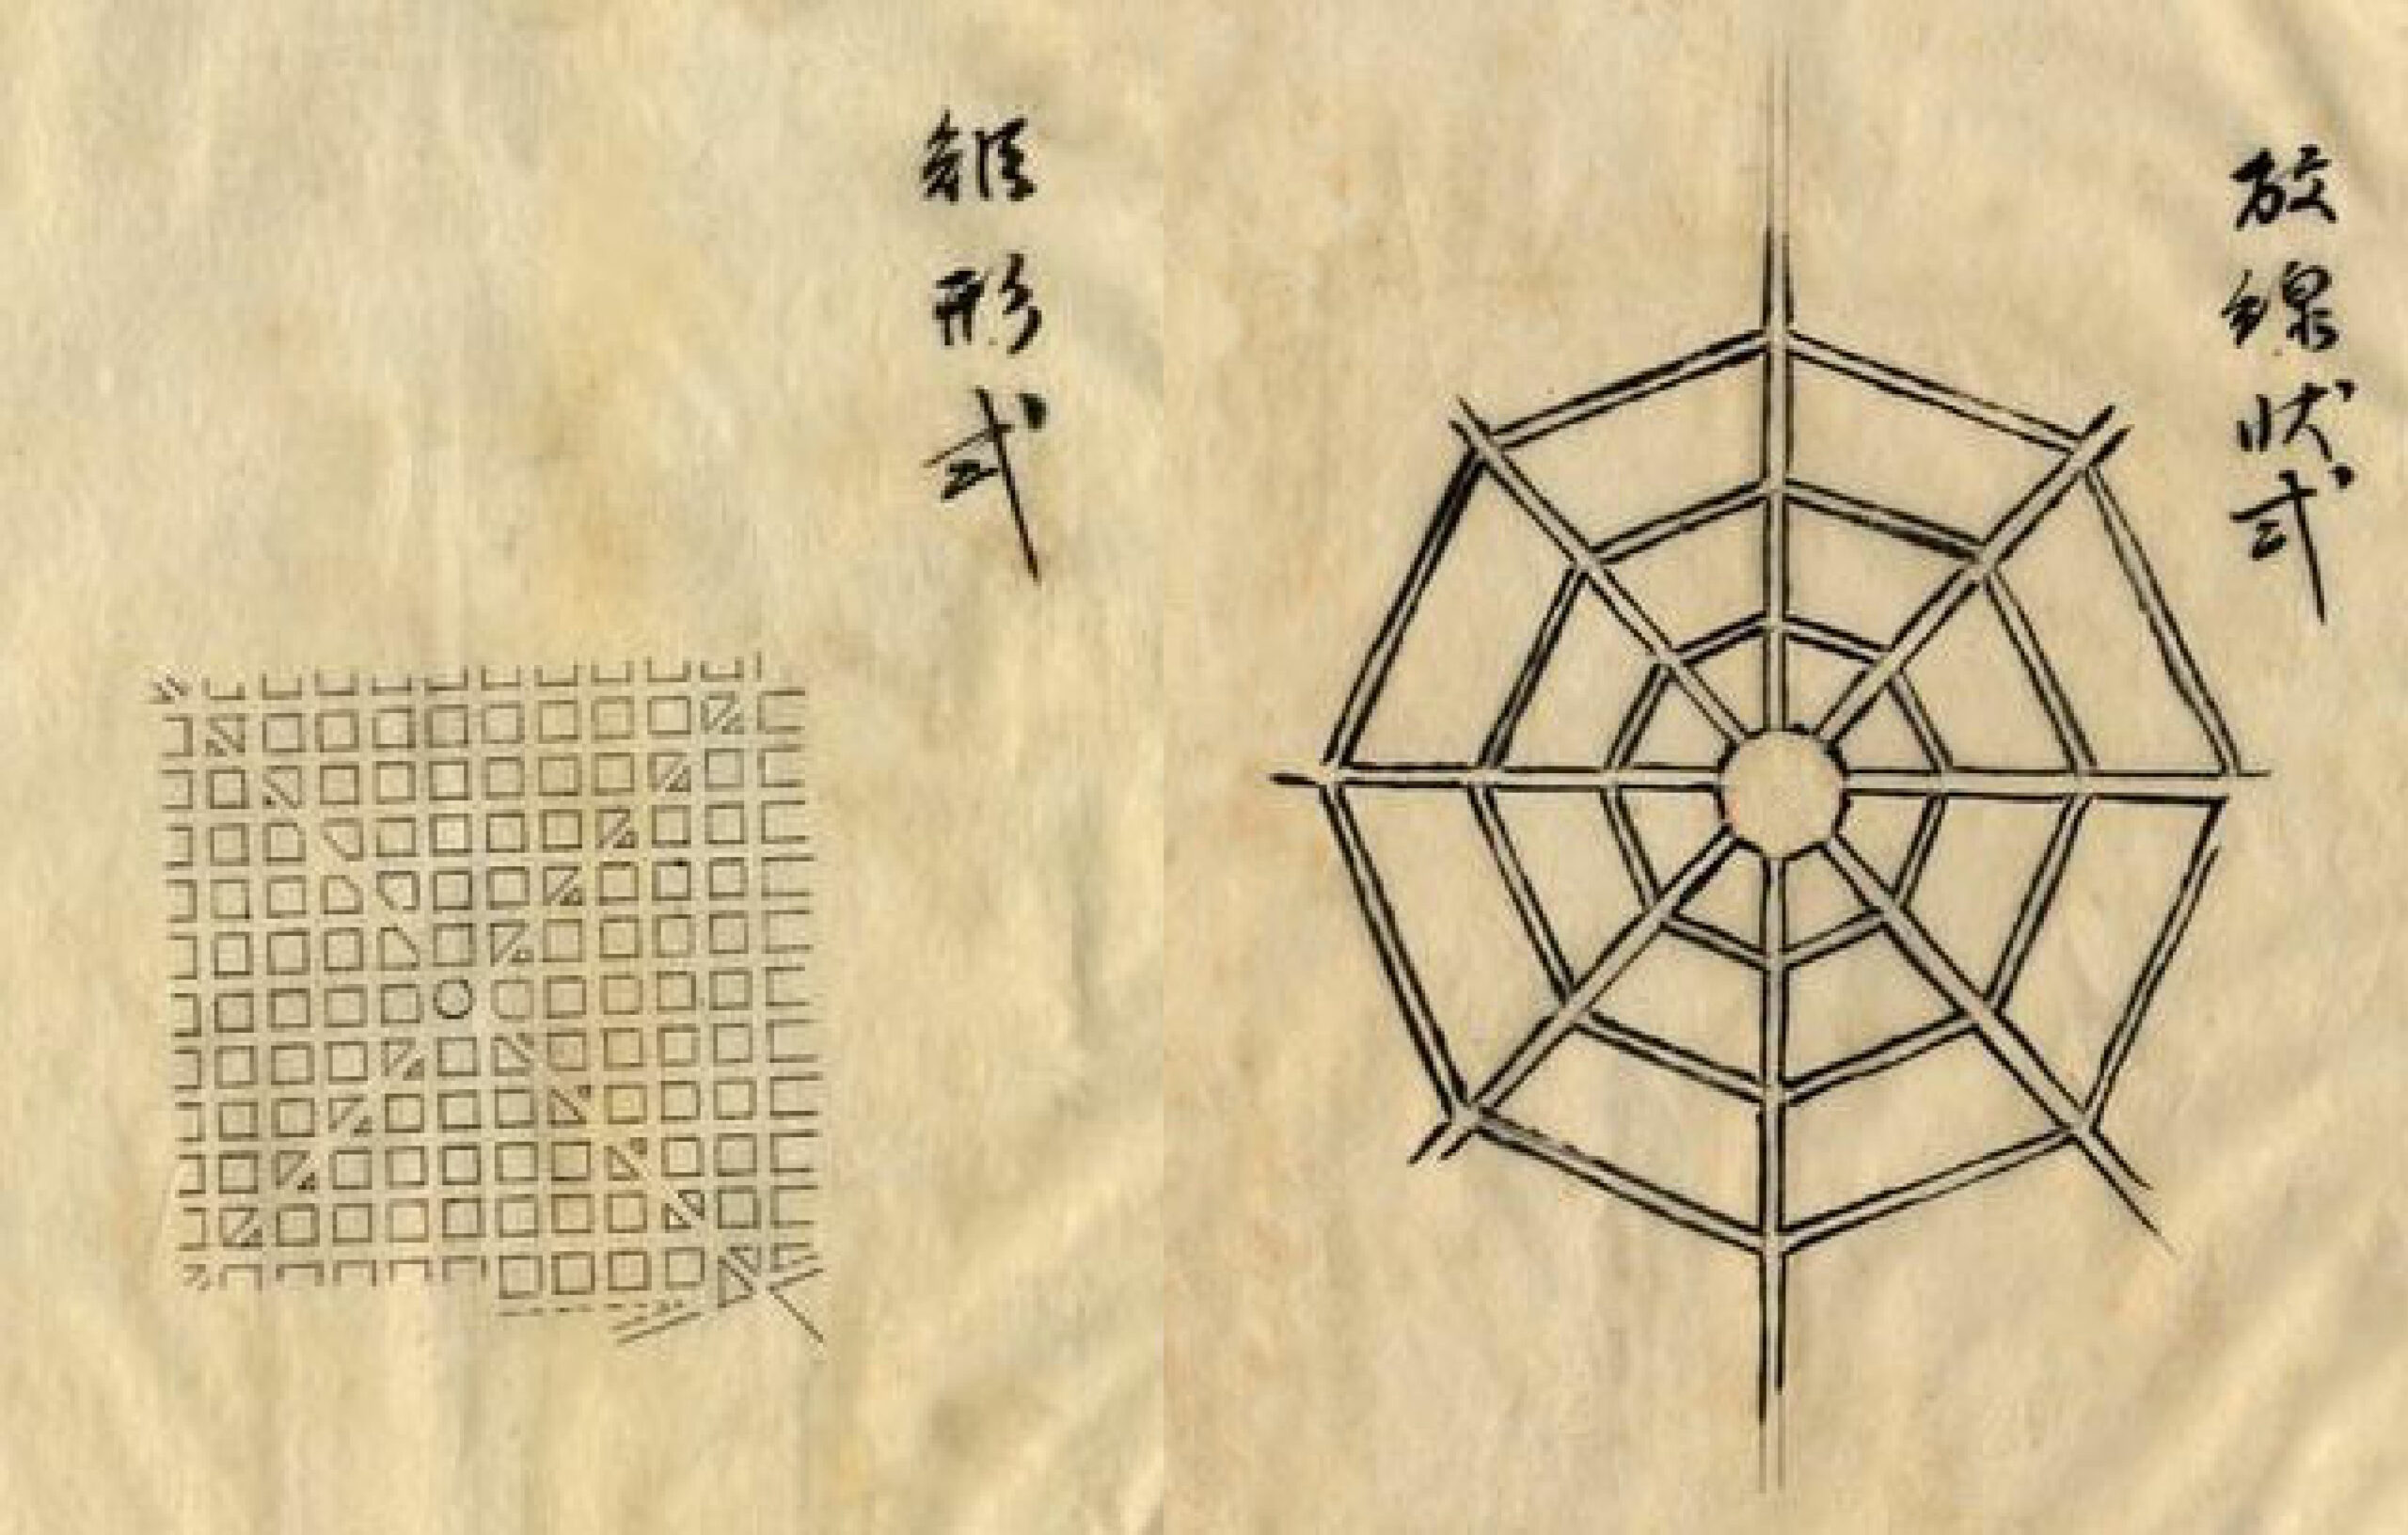 放線状式
錐形式